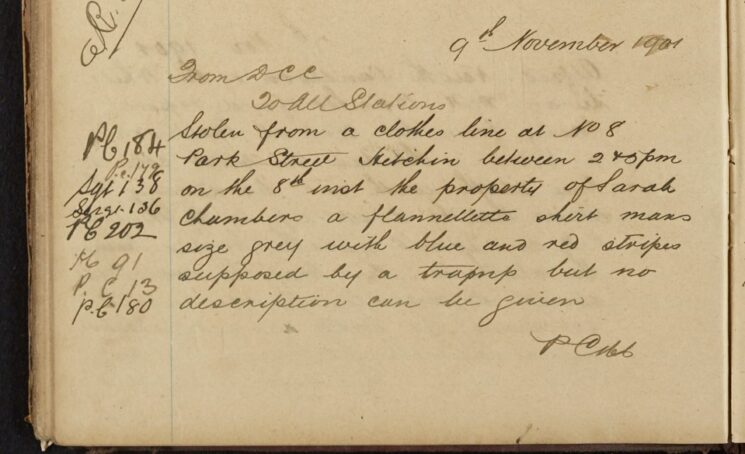 9th November 1901
From DCC
To All Stations
Stolen from a clothes line at No 8
Park Street Hitchin between 2 & 5 pm
on the 8th inst the property of Sarah
Chambers a flannellette shirt mans
size grey with blue and red stripes
supposed by a tramp but no
description can be given
PC 184
P.C. 179
Sgt 138
Sergt. 136
PC 202
91
P.C 13
P.C 180